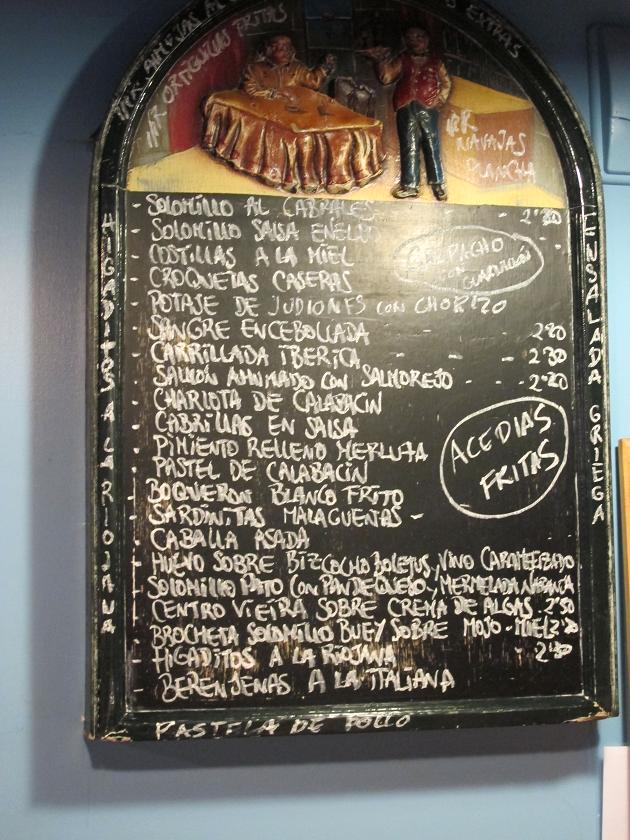 ORTIGUILLAS FRITAS
EXTRAS
NAVAJAS
PLANCHA
- SOLOMILLO AL CABRALES - 2'80
- SOLOMILLO SALSA
- COSTILLAS A LA MIEL
CROQUETAS CASERAS
- POTAJE DE JUDIONES CON CHORIZO
- SANGRE ENCEBOLLADA 2'80
- CARRILLADA IBERICA - - - 2'80
- SALMON AHUMADO CON SALMOREJO - - 2'80
- CHARLOTA DE CALABACIN
- CABRILLAS EN SALSA
- PIMIENTO RELLENO MERLUZA
- PASTEL DE CALABACIN
- BOQUERON BLANCO FRITO
- SARDINITAS MALAGUEÑAS -
CABALLA ASADA
- HUEVO SOBRE BIZCOCHO BOLETUS, VINO CARAMELIZADO
- SOLOMILLO PATO CON PAN DE QUESO Y MERMELADA NARANJA
- CENTRO VIEIRA SOBRE CREMA DE ALGAS 2'50
- BROCHETA SOLOMILLO BUEY SOBRE MOJO-MIEL
- HIGADITOS A LA RIOJANA
- BERENJENAS A LA ITALIANA
ACEDIAS
FRITAS
HIGADITOS A LA RIOJANA
ENSALADA GRIEGA
PASTELA DE POLLO